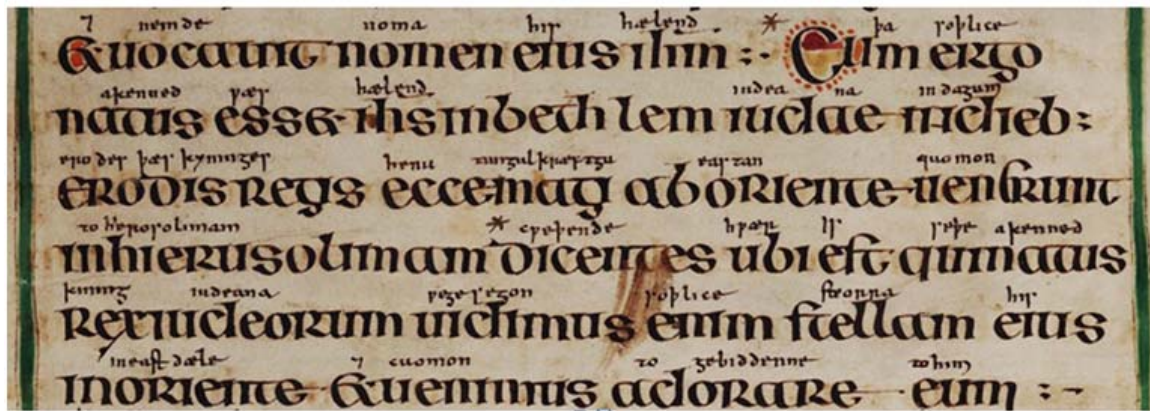 ⁊ nemde noma his hælend * þa soþlice
&uocauit nomen eius ihm :· Cum ergo
akenned ƿær hælend iudea na in dagum
natus esset ihs in bethlem iudae in dieb:
erodes þæs kyninges henu tungulkræftgu eastan quomon
erodis regis ecce magi ab oriente uenerunt
to hierosolimam * cƿeþende hƿær is seþe akenned
in hierusolimam dicentes ubi est qui natus
kining iudeana ƿe gesegon soþlice steorra his
rex iudeorum uidimus enim stellam eius
in eastdæle ⁊ cuomon to gebiddenne to him
in oriente &uenimus adorare eum :-